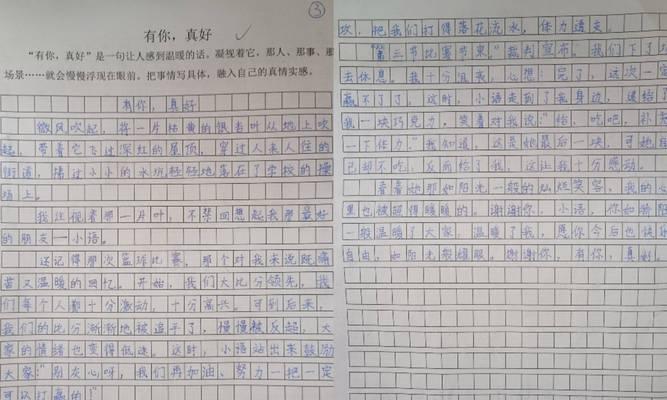 ③
有你，真好
“有你，真好”是一句让人感到温暖的话。凝视着它，那人、那事、那
场景……就会慢慢浮现在眼前。把事情写具体，融入自己的真情实感。
有你，真好
微风吹起，将一片枯黄的银杏叶从地上吹
起，带着它飞过深红的屋顶，穿过人来人往的
街道，擦过小小的水坑轻轻地落在了学校的操
场上。
我注视着那一片叶，不禁回想起我那最好
的朋友—小语。
还记得那次篮球比赛，那个对我来说既痛
苦又温暖的回忆。开始，我们大比分领先，我
们每个人都十分激动，十分高兴。可到后来，
我们的比分渐渐地被追平了，慢慢被反超，大
家的情绪也变得低迷。这时，小语站出来鼓励
大家：“别灰心呀，我们再加油、努力一把一定
可以打赢的！”
坎，把我们打得落花流水，体力透支。
“第三节比赛节束。”裁判宣布。我们下了
去休息。我十分沮丧，心想：完了，这次一定
赢不了了。这时，小语走到了我身边，递给了
我一块巧克力，笑着对我说：“给，吃吧，补充
一下体力。”我知道，这是她最后一块，可她自
己却不吃，反而给了我，这让我十分感动。
看着她那如阳光一般的灿烂笑容，我的心
里也被照得暖暖的。谢谢你，小语，你如骄阳
一般温暖了大家，温暖了我，愿你今后也快乐
自由，如阳光般耀眼。谢谢你，有你，真好。